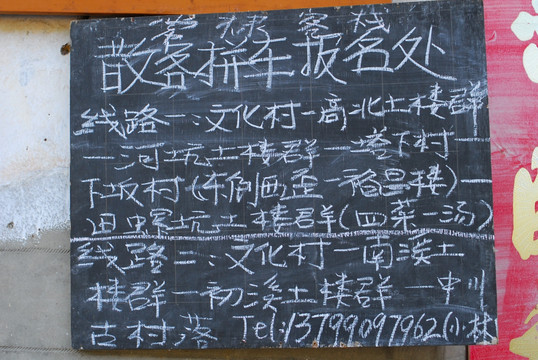 客栈
散客拼车报名处
线路一:文化村—高北土楼群
—河坑土楼群—塔下村—
下坂村(东倒西歪—裕昌楼)—
田螺坑土楼群(四菜一汤)
线路二:文化村—南溪土
楼群—初溪土楼群—中川
古村落 Tel:13799097962(小林)